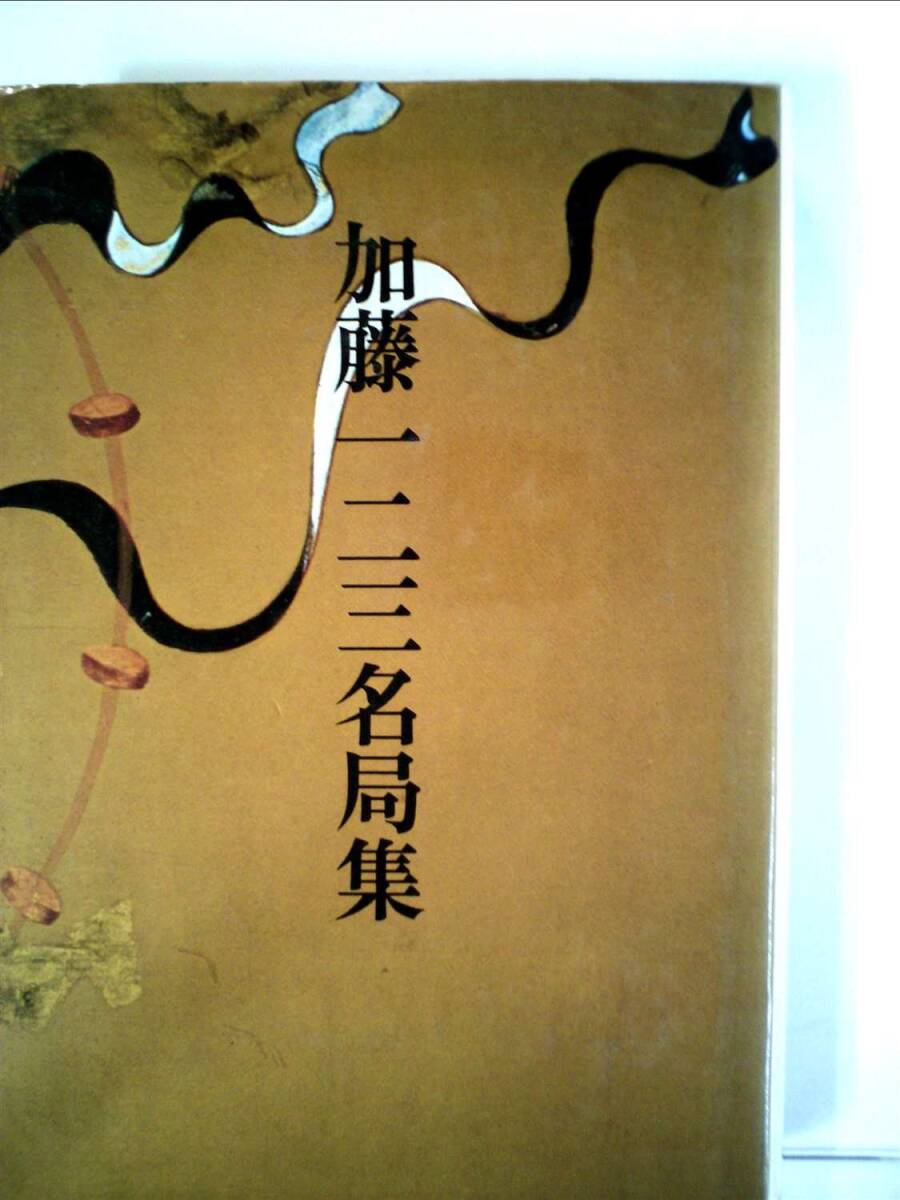 加藤一二三名局集